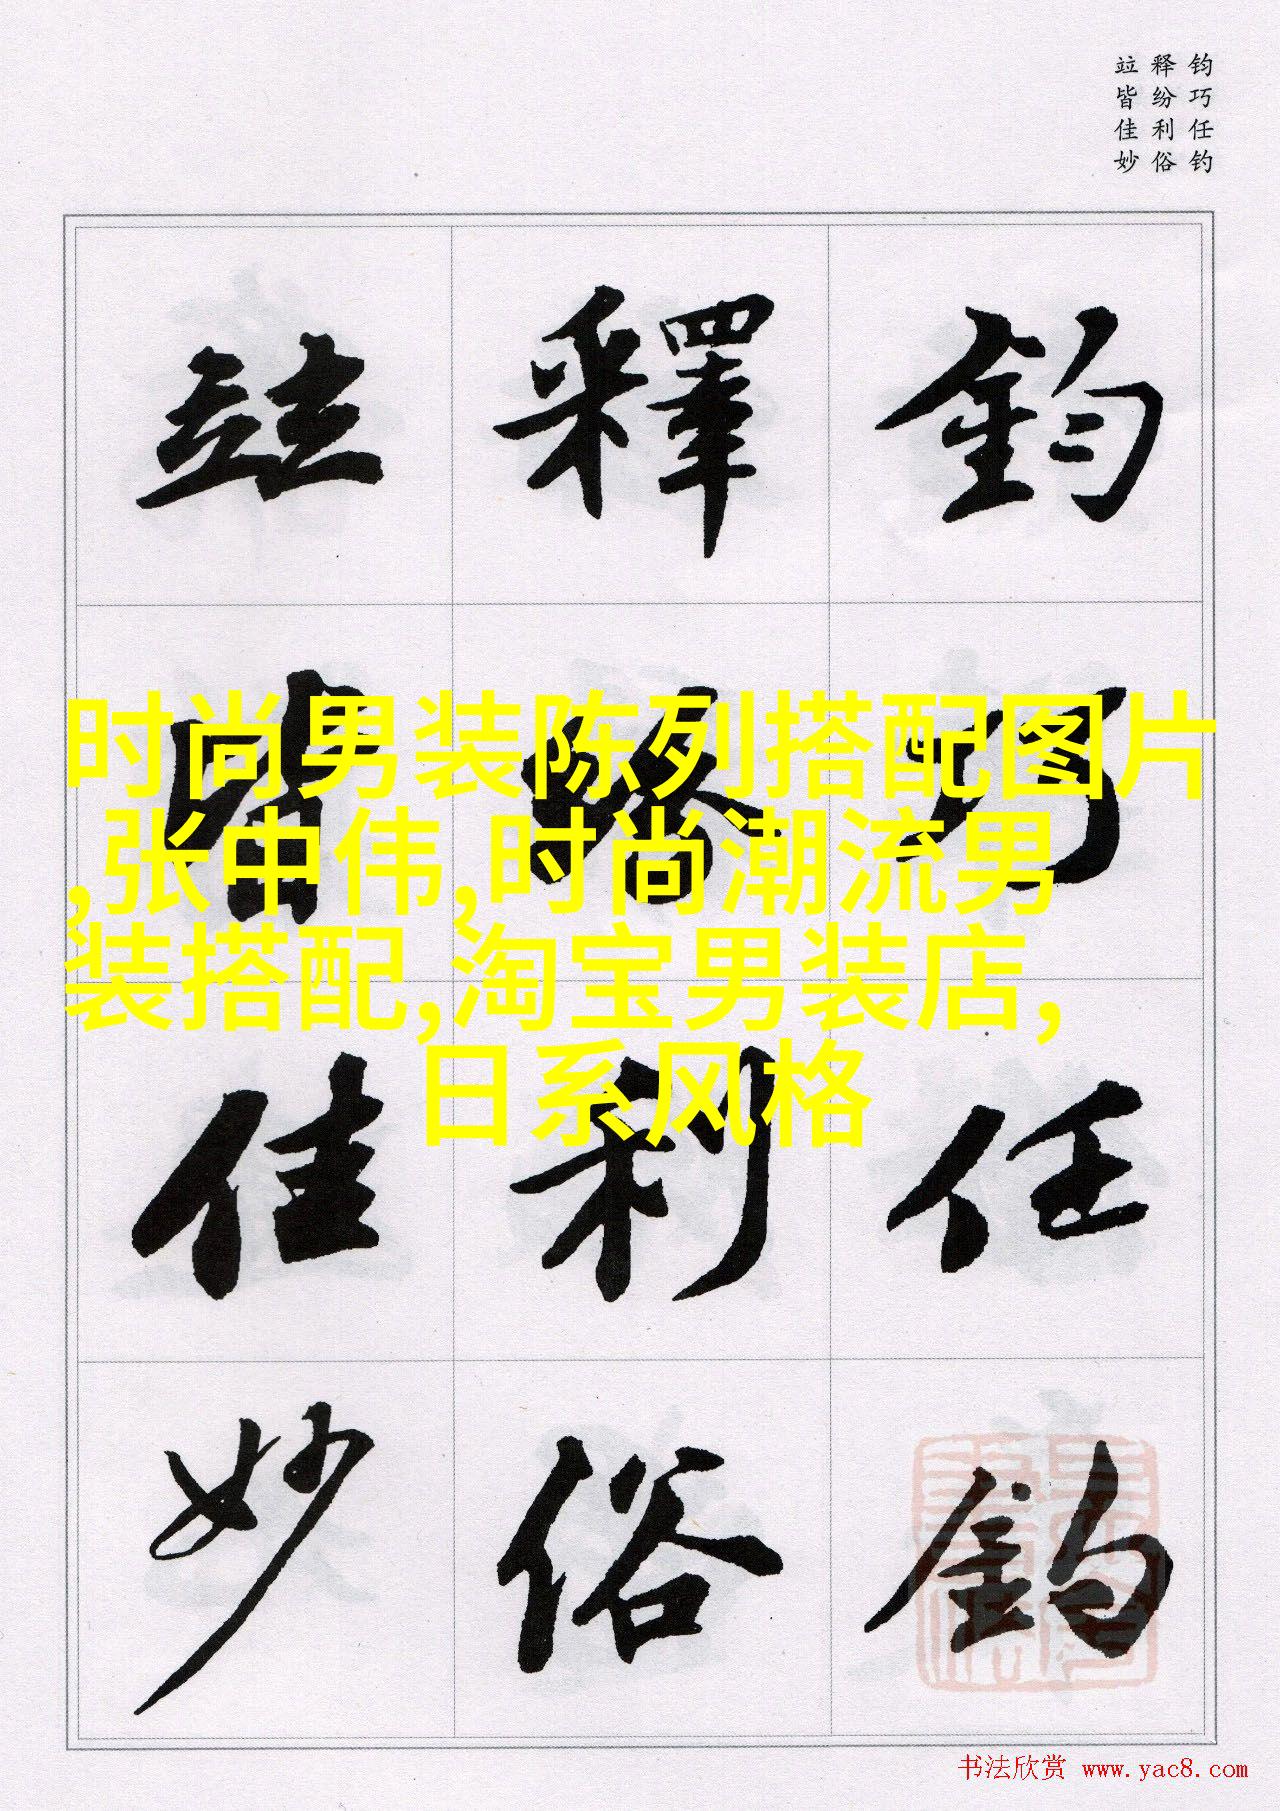 钧巧任钓
释纷利俗
竝皆佳妙
鈞巧任釣
釋紛利俗
竝皆佳妙
时尚男装陈列搭配图片
,张中伟,时尚潮流男
装搭配,淘宝男装店,
日系风格
书法欣赏 www.yac8.com